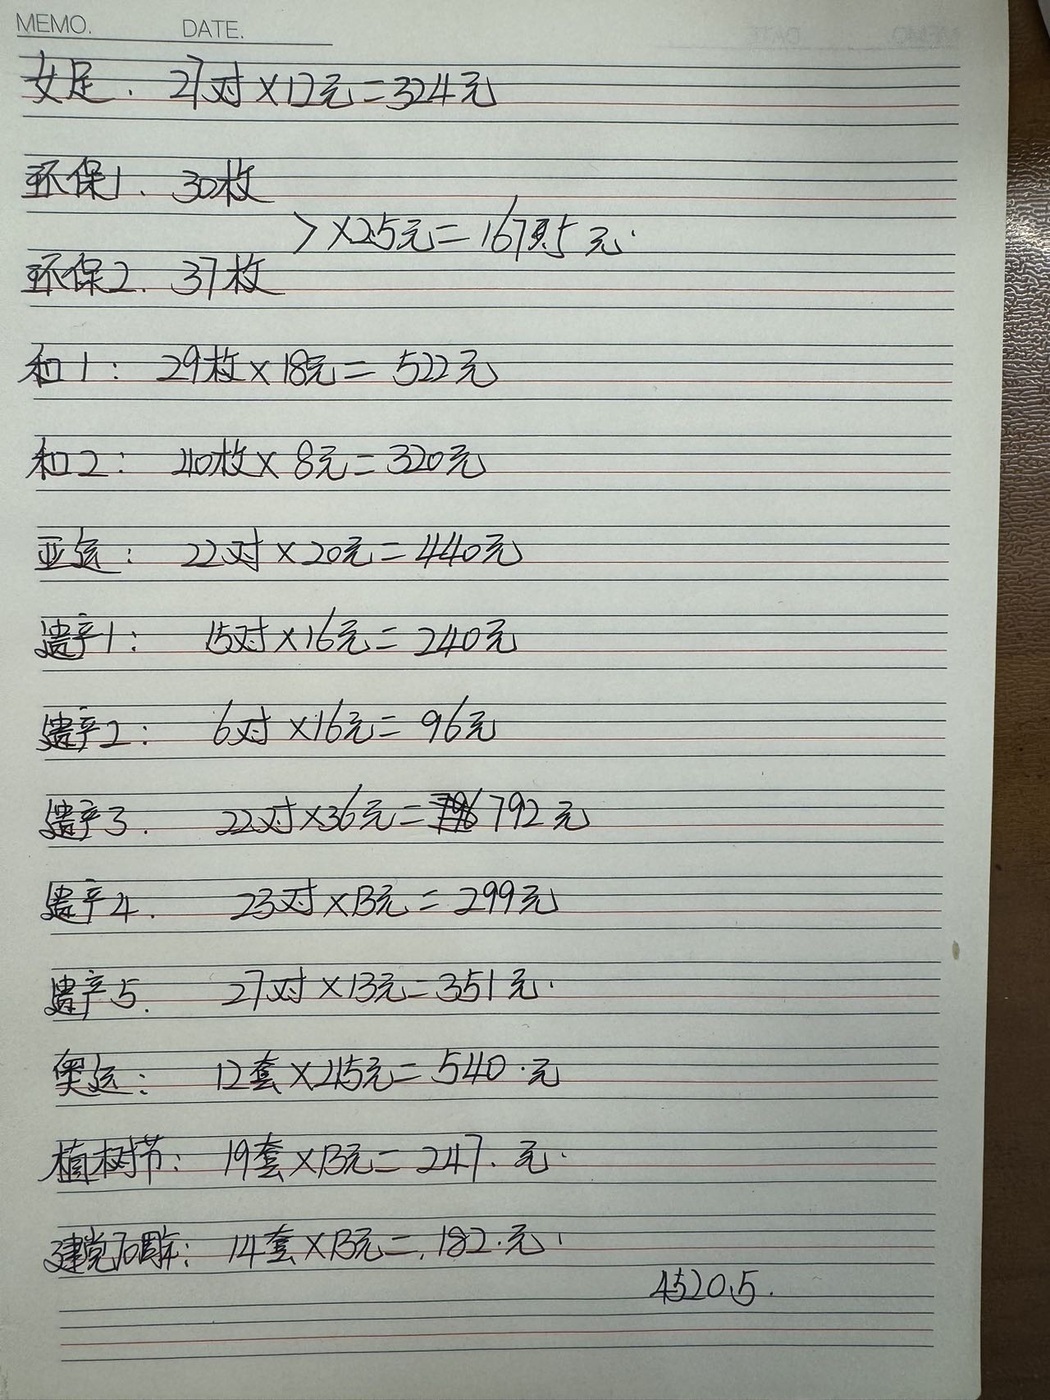 MEMO. DATE.
女足. 27对×12元=324元
环保1. 30枚
>×2.5元=167.5元.
环保2. 37枚
和1: 29枚×18元=522元
和2: 40枚×8元=320元
亚运: 22对×20元=440元
遗产1: 15对×16元=240元
遗产2: 6对×16元=96元
遗产3. 22对×36元=792元
遗产4. 23对×13元=299元
遗产5. 27对×13元=351元.
奥运: 12套×45元=540.元
植树节: 19套×13元=247.元.
建党70周年: 14套×13元=.182.元.
4520.5.